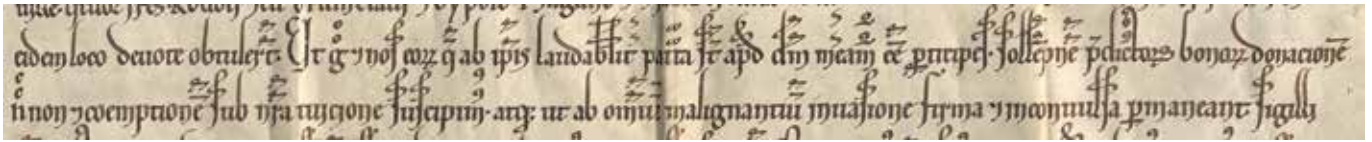 eidem loco deuote obtulerͬt. Ut gͦ ⁊ nos eorꝝ q̄ ab ip̄is laudabilit̄ pat̄ta st̄ apd̄ dm̄ m̄eam̄ ēē ꝑticipes. sollēpnē p̄dictorꝝ bonorꝝ donacionē
nͦ non ⁊ coemptionē sub nr̄a tuicione suscipimꝰ. atq; ut ab om̄iū malignantiū inuasione firma ⁊ inconuulsa ꝑmaneant sigilli